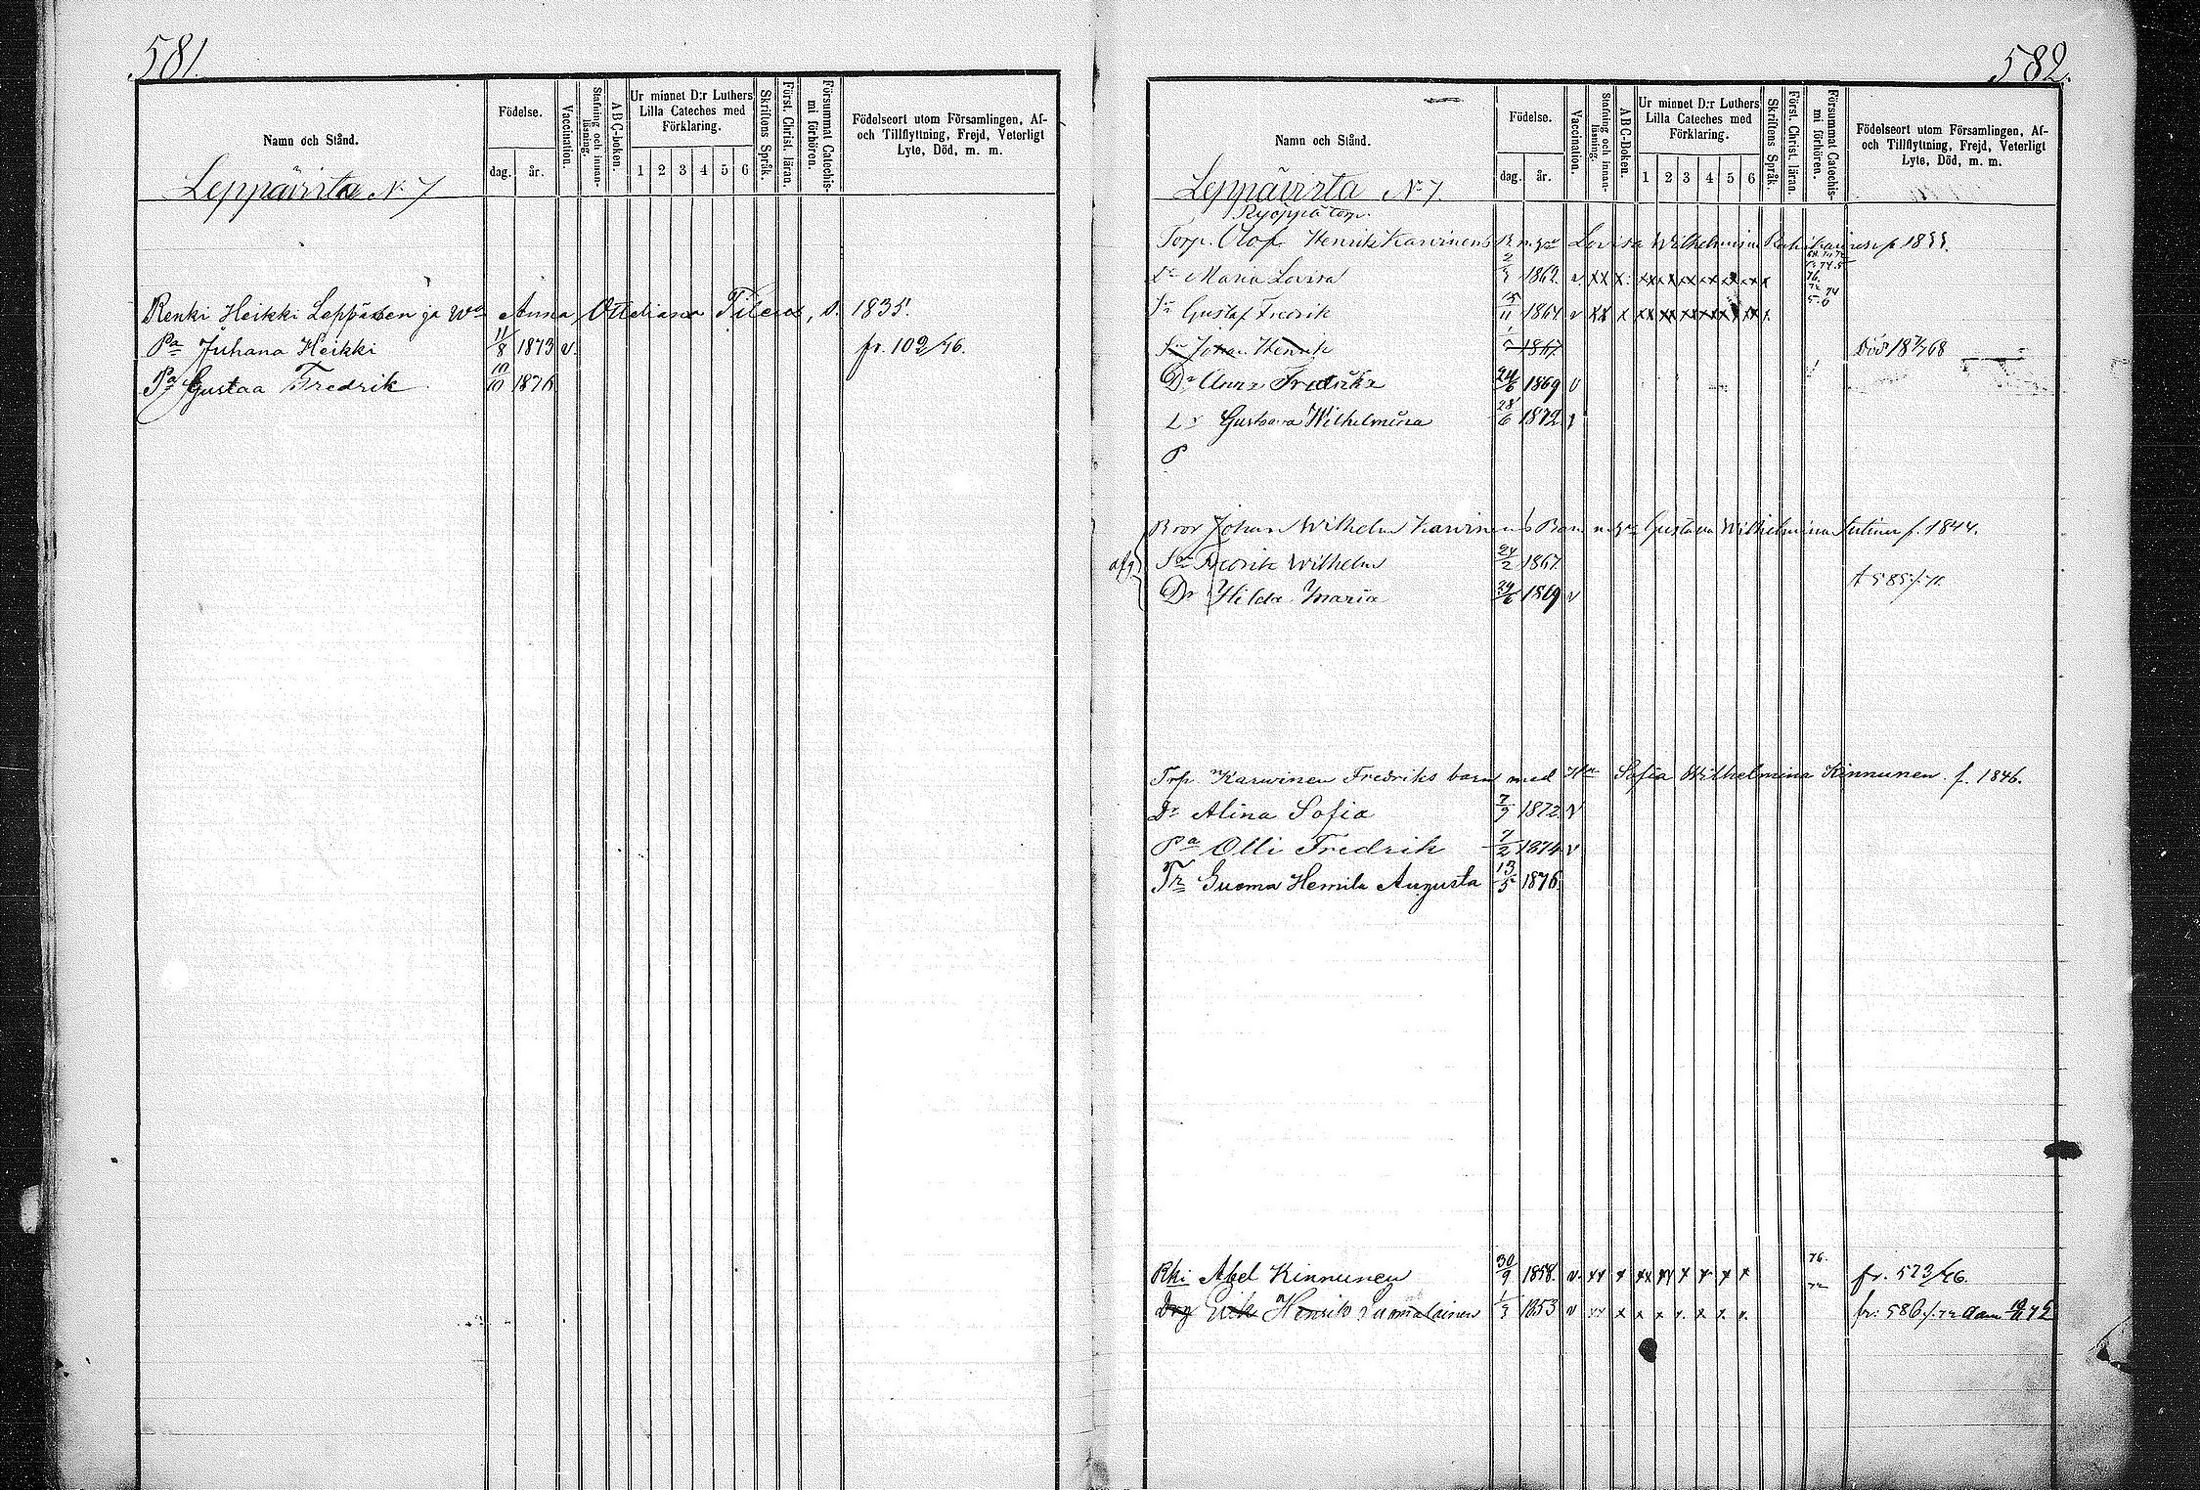 581.
Namn och Stånd.
Födelse.
dag.
år.
Vaccination.
Stafning och innan-
läsning.
ABC-boken.
Ur minnet D:r Luthers
Lilla Cateches med
Förklaring.
1 2 3 4 5 6
Skriftens Språk.
Först. Christ. läran.
Försummat Catechis-
mi förhören.
Födelseort utom Församlingen, Af-
och Tillflyttning, Frejd, Veterligt
Lyte, Död, m. m.
Leppävirta N 7
Renki Heikki Leppänen ja Wo Anna Otteliana, s. 1835.
Pa Juhana Heikki 11/8 1873 v. fr. 102/76.
Pa Gustaa Fredrik 10/10 1876
582.
Namn och Stånd.
Födelse.
dag.
år.
Vaccination.
Stafning och innan-
läsning.
ABC-Boken.
Ur minnet D:r Luthers
Lilla Cateches med
Förklaring.
1 2 3 4 5 6
Skriftens Språk.
Först. Christ. läran.
Försummat Catechis-
mi förhören.
Födelseort utom Församlingen, Af-
och Tillflyttning, Frejd, Veterligt
Lyte, Död, m. m.
Leppävirta N 7.
Ryöppä torp.
Torp. Olof Henrik Karvinens B. m. Lovisa Wilhelmina
Dr Maria Lovisa 1862 v xx x xx xx xx xx xx xx x
Sn Gustaf Fredrik 15/11 1864 v xx x xx xx xx xx xx xx x
Sn Johan Henrik 1867 Död 68
Dr Anna Fredrika 24/6 1869 v
Dr Gustava Wilhelmina 28/6 1872 v
P
Bror Johan Wilhelm Karvinens Barn m. Gustava Wilhelmina f. 1844.
afg
Son Fredrik Wilhelm 24/2 1867
Dr Hilda Maria 24/6 1869 v
Trp Karwinen Fredriks barn med Hu Sofia Wilhelmina Kinnunen f. 1846.
Dr Alina Sofia 7/9 1872 v
Pa Olli Fredrik 7/2 1874 v
Tr Hemila Augusta 13/5 1876.
Rki Abel Kinnunen 30/9 1858. v. xx x xx xx x x x x 76. fr. 573/76.
Drg Erik Henrik 1853 v xx x x x x x x x fr. 586